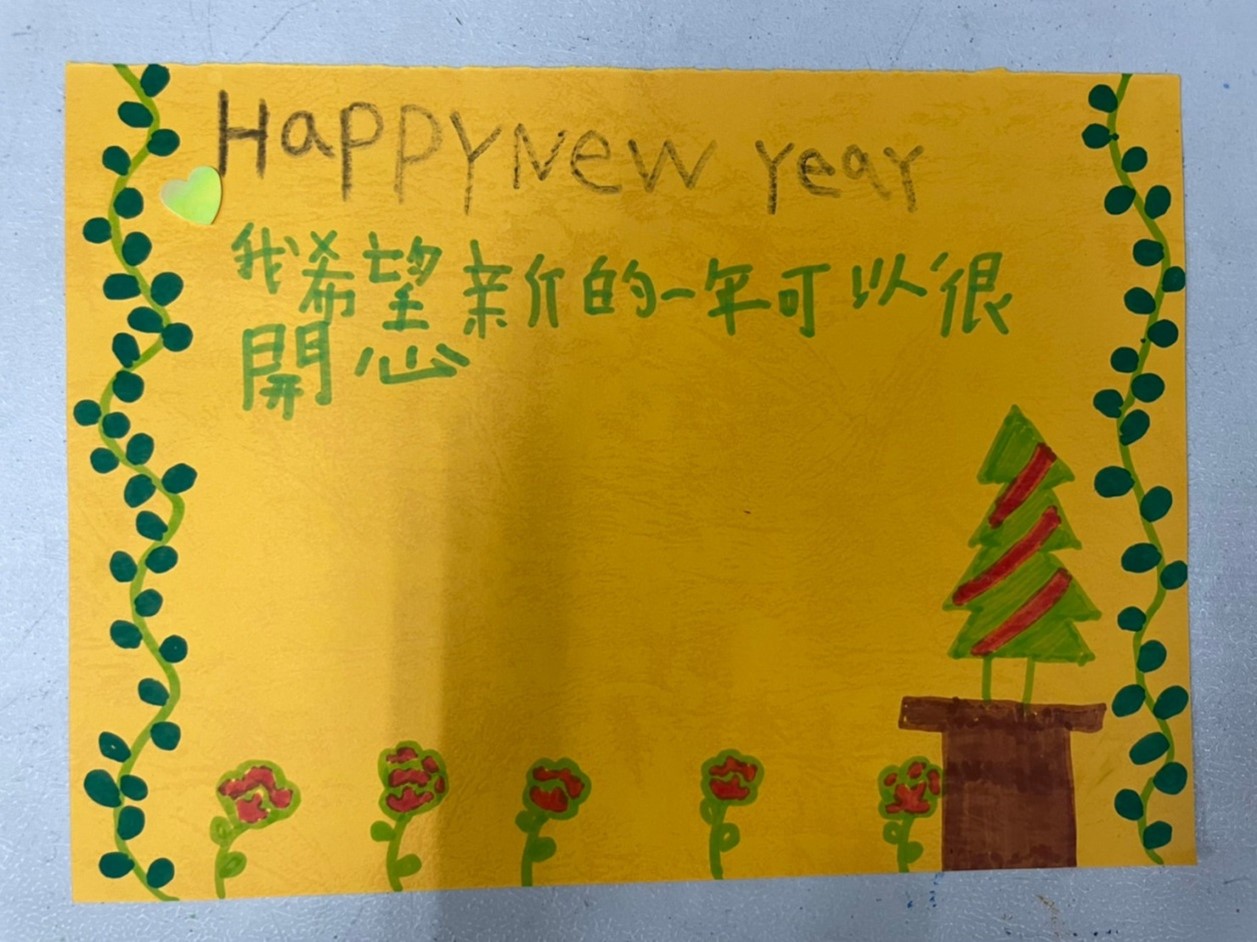 Happy New Year
我希望新的一年可以很
開心